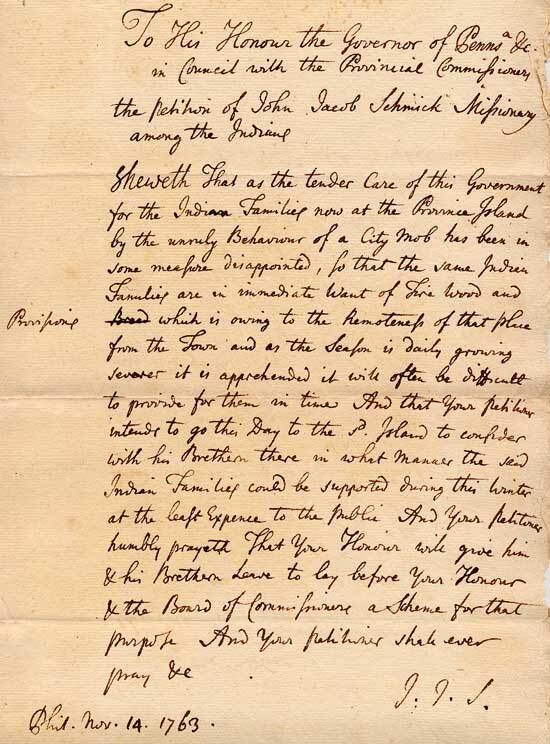 To His Honour the Governor of Penns.ª &c.
in Council with the Provincial Commissioners
the petition of John Jacob Schmick Missionary
among the Indians
Sheweth That as the tender Care of this Government
for the Indian Families now at the Province Island
by the unruly Behaviour of a City Mob has been in
some measure disappointed, so that the same Indian
Families are in immediate Want of Fire Wood and
Provisions
Bread which is owing to the Remoteness of that place
from the Town and as the Season is daily growing
severer it is apprehended it will often be difficult
to provide for them in time And that Your Petitioner
intends to go this Day to the P. Island to consider
with his Brethern there in what Manner the said
Indian Families could be supported during this Winter
at the least Expence to the Public And Your Petitioner
humbly prayeth That Your Honour will give him
& his Brethern Leave to lay before Your Honour
& the Board of Commissioners a Scheme for that
purpose And Your Petitioner shall ever
pray &c
J. J. S.
Phil. Nov. 14. 1763.